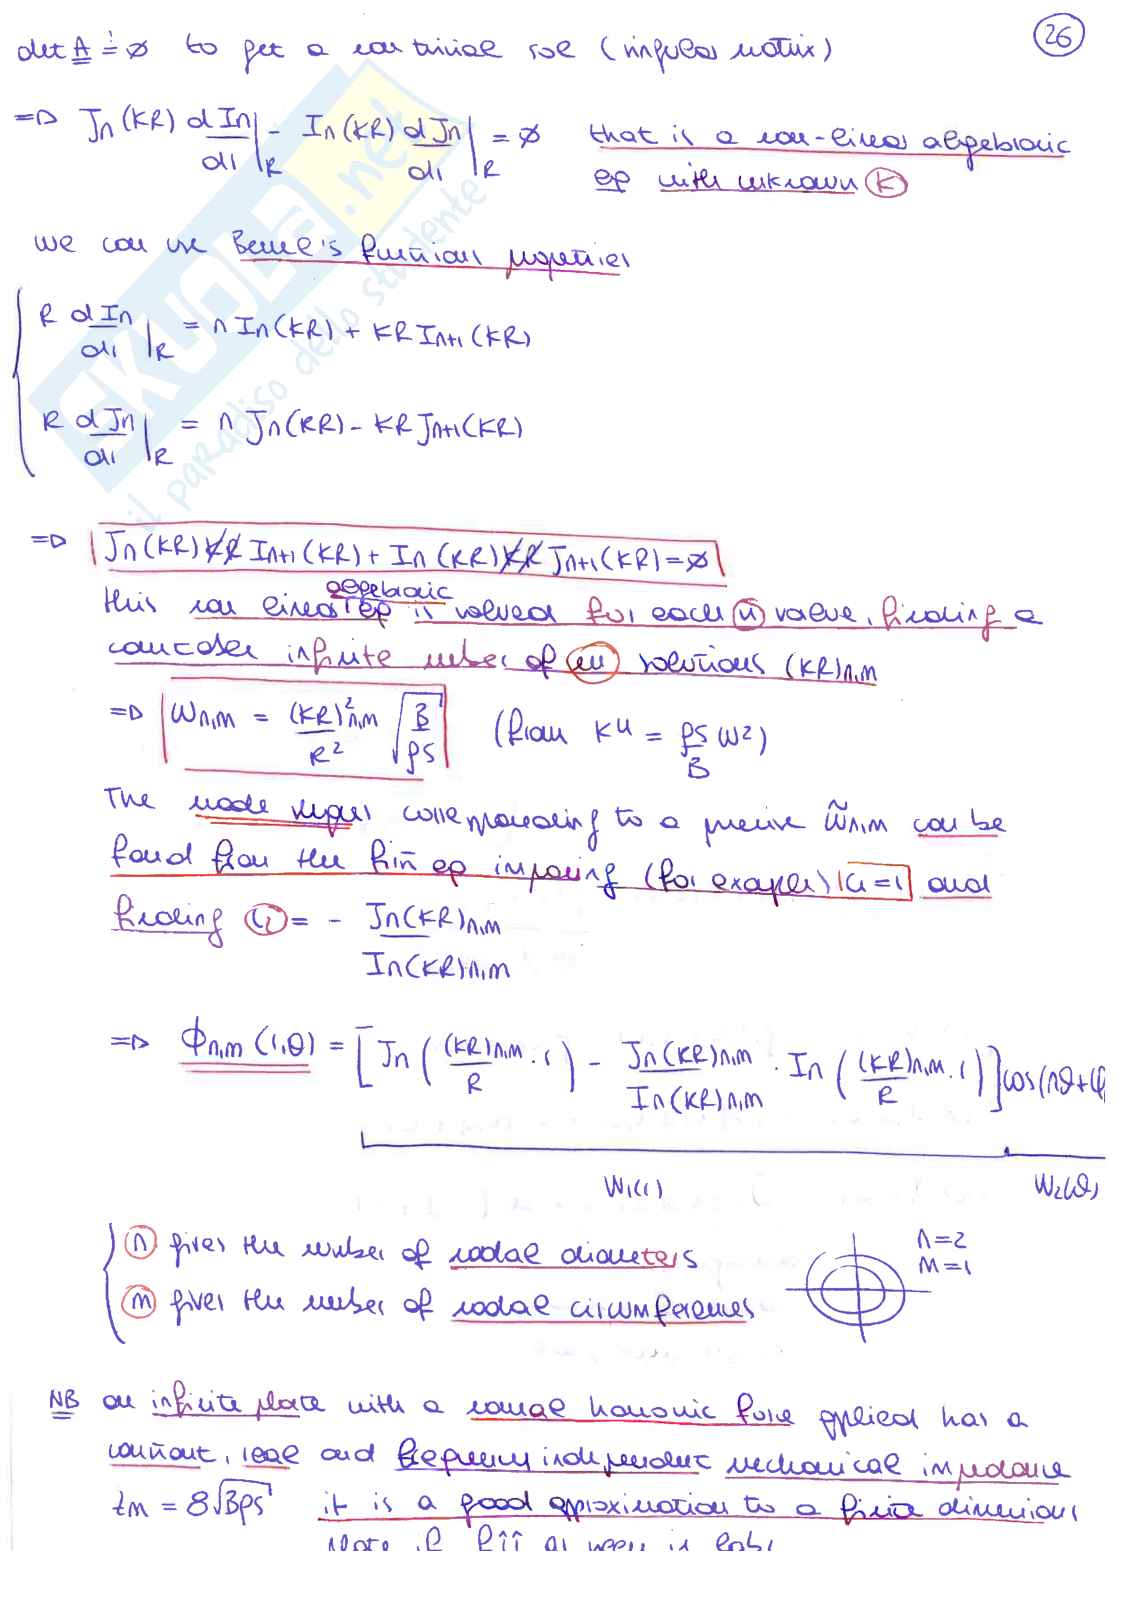 26
det A = ø to get a non trivial sol (singular matrix)
=> Jn(KR) dIn/dr|R - In(KR) dJn/dr|R = ø that is a non-linear algebraic
eq with unknown K
we can use Bessel's functions properties
R dIn/dr|R = n In(KR) + KR In+1(KR)
R dJn/dr|R = n Jn(KR) - KR Jn+1(KR)
=> Jn(KR) KR In+1(KR) + In(KR) KR Jn+1(KR) = ø
this non linear algebraic eq is solved for each n value, finding a
infinite number of m solutions (KR)n,m
=> ωn,m = (KR)²n,m/R² √(B/ρS) (from K⁴ = ρS/B ω²)
The mode shapes corresponding to a precise ω̃n,m can be
found from the first eq imposing (for example) C1=1 and
finding C2 = - Jn(KR)n,m/In(KR)n,m
=> ϕn,m(r,θ) = [Jn((KR)n,m·r/R) - Jn(KR)n,m/In(KR)n,m · In((KR)n,m·r/R)] cos(nθ+φ
W1(r) W2(θ)
n gives the number of nodal diameters
n=2
m=1
m gives the number of nodal circumferences
NB an infinite plate with a normal harmonic force applied has a
constant, real and frequency independent mechanical impedance
zm = 8√BρS it is a good approximation to a finite dimensions
SKUOLA.net
il paradiso dello studente